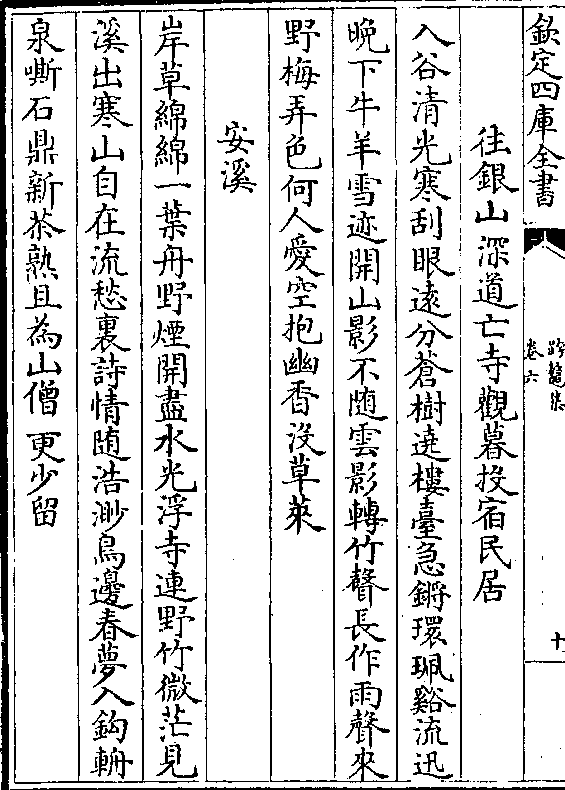 欽定四庫全書
跨鼇集
卷六
十
往銀山深道亡寺觀暮投宿民居
入谷清光寒刮眼遠分蒼樹遶樓臺急鏘環珮谿流迅
晚下牛羊雪迹開山影不随雲影轉竹聲長作雨聲來
野梅弄色何人愛空抱幽香沒草萊
安溪
岸草綿綿一葉舟野煙開盡水光浮寺連野竹微茫見
溪出寒山自在流愁裏詩情随浩渺鳥邊春夢入鈎輈
泉嘶石鼎新茶熟且為山僧更少留